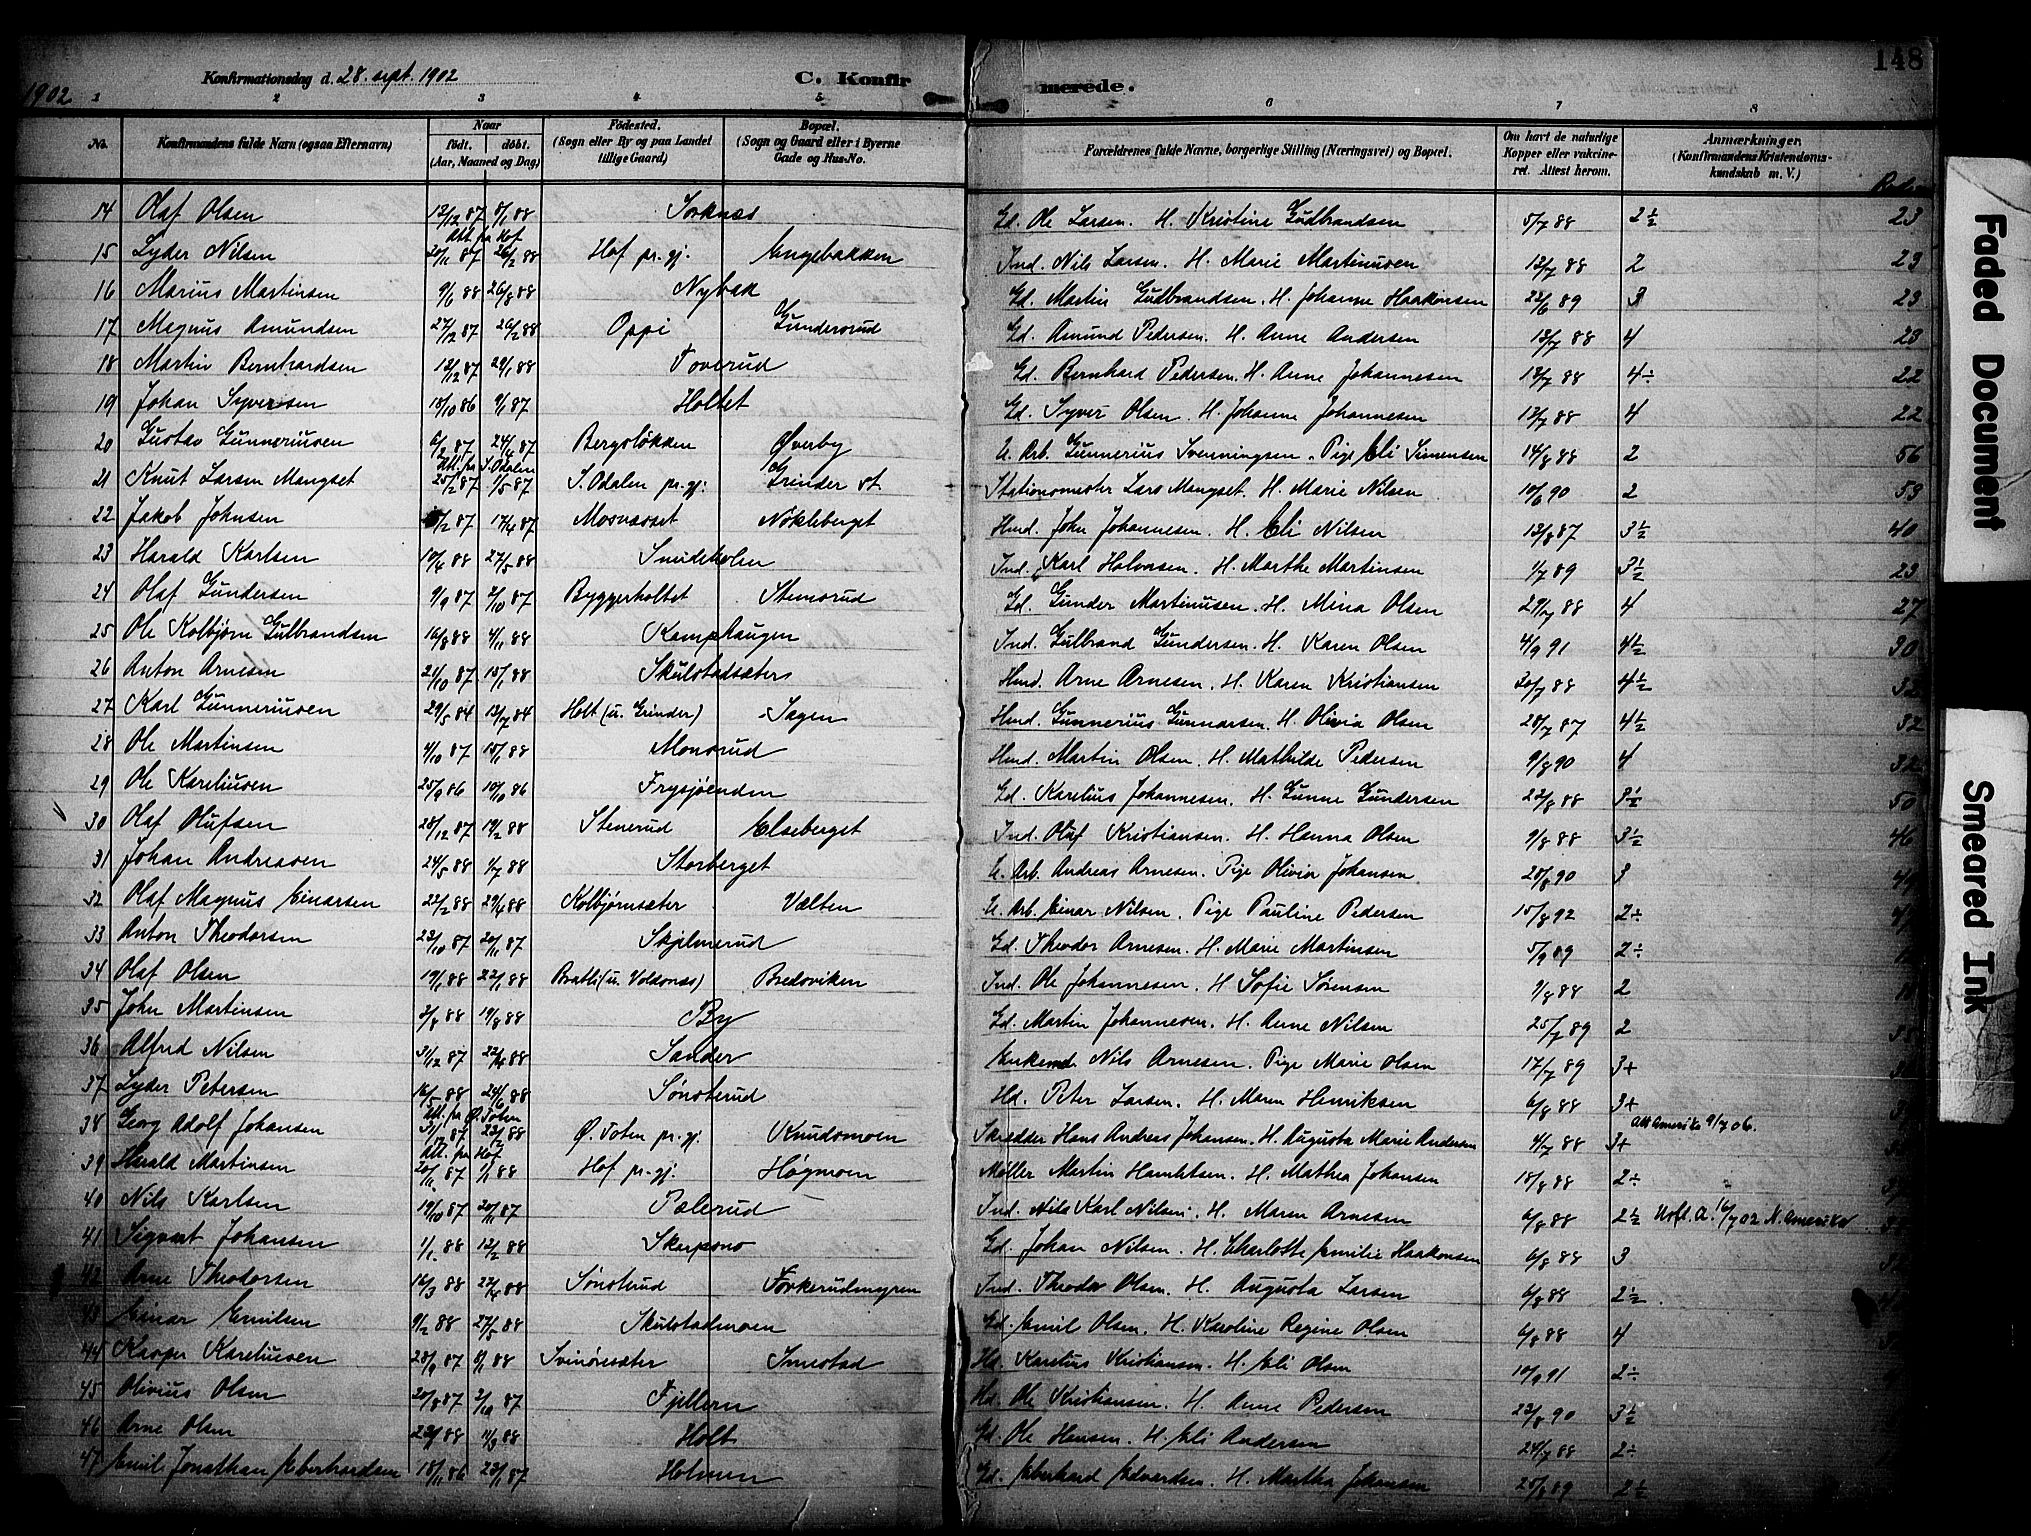 1902
Konfirmationsdag d. 28. sept. 1902
C. Konfirmerede.
148
1 2 3 4 5 6 7 8
No. Konfirmandens fulde Navn (ogsaa Efternavn) Naar født. døbt. (Aar, Maaned og Dag) Fødested. (Sogn eller By og paa Landet tillige Gaard) Bopæl. (Sogn og Gaard eller i Byerne Gade og Hus-No. Forældrenes fulde Navne, borgerlige Stilling (Næringsvei) og Bopæl. Om havt de naturlige Kopper eller vakcineret. Attest herom. Anmærkninger. (Konfirmandens Kristendomskundskab m. V.)
14 Olaf Olsen 12/12 87 8/1 88 Sorknæs Gd. Ole Larsen. H. Kristine Gudbrandsen 5/7 88 2½ 23
Att fra Hof
15 Lyder Nilsen 20/11 87 26/2 88 Hof pr.gj. Engebakken Ind. Nils Larsen. H. Marie Martinusen 12/7 88 2 23
16 Marius Martinsen 9/6 88 26/8 88 Nybak Gd. Martin Gudbrandsen. H. Johanne Haakonsen 22/6 89 3 23
17 Magnus Amundsen 27/12 87 26/2 88 Oppi Gundersrud Gd. Amund Pedersen. H. Anne Andersen 12/7 88 4 23
18 Martin Bernhardsen 12/12 87 29/1 88 Toverud Gd. Bernhard Pedersen. H. Anne Johannesen 12/7 88 4÷ 22
19 Johan Syversen 18/10 86 9/1 87 Holtet Gd. Syver Olsen. H. Johanne Johannesen 12/7 88 4 22
20 Gustav Gunneriusen 6/2 87 24/4 87 Bergsløkken Øverby U. Arb. Gunnerius Svenningsen. Pige Eli Simensen 14/8 88 2 56
Att. fra S. Odalen
21 Knut Larsen Mangset 25/2 87 1/5 87 S. Odalen pr.gj. Grinder st. Stationsmester Lars Mangset. H. Marie Nilsen 10/6 90 2 53
22 Jakob Johnsen /2 87 17/4 87 Mosnæsset Nøkleberget Hmd. John Johannesen. H. Eli Nilsen 12/8 87 3½ 40
23 Harald Karlsen 10/4 88 27/5 88 Snideholen Ind. Karl Halvorsen. H. Marthe Martinsen 1/7 89 3½ 23
24 Olaf Gundersen 9/9 87 2/10 87 Byggerholtet Stemsrud Gd. Gunder Martinusen. H. Mina Olsen 29/7 88 4 27
25 Ole Kolbjørn Gulbrandsen 16/8 88 4/11 88 Kamphaugen Ind. Gulbrand Gundersen. H. Karen Olsen 4/9 91 4½ 30
26 Anton Arnesen 21/10 87 15/1 88 Skulstadsæter Hmd. Arne Arnesen. H. Karen Kristiansen 20/7 88 4½ 32
27 Karl Gunneriusen 29/5 84 13/7 84 Holt (u. Grinder) Sagen Hmd. Gunnerius Gunnarsen. H. Olivia Olsen 28/7 87 4½ 32
28 Ole Martinsen 4/10 87 15/1 88 Monsrud Hmd. Martin Olsen. H. Mathilde Pedersen 9/8 90 4 32
29 Ole Kareliusen 25/9 86 10/10 86 Frysjøenden Gd. Karelius Johannesen. H. Gunne Gundersen 22/8 88 3½ 50
30 Olaf Olufsen 28/12 87 19/2 88 Stenerud Elseberget Ind. Oluf Kristiansen. H. Hanna Olsen 9/8 88 3½ 46
31 Johan Andreasen 24/5 88 1/7 88 Storberget U. Arb. Andreas Arnesen. Pige Olivia Johansen 28/8 90 3
32 Olaf Magnus Einarsen 22/2 88 29/4 88 Kolbjørnsæter Vælten U. Arb. Einar Nilsen. Pige Pauline Pedersen 15/8 92 2÷
33 Anton Theodorsen 23/10 87 20/11 87 Skjelmerud Gd. Theodor Arnesen. H. Marie Martinsen 5/9 89 2÷
34 Olaf Olsen 19/1 88 22/1 88 Bratli (u. Voldsnæs) Bredsviken Ind. Ole Johannesen. H Sofie Sørensen 9/8 88 2
35 John Martinsen 3/8 88 19/8 88 By Gd. Martin Johannesen. H. Anne Nilsen 25/7 89 2
36 Alfred Nilsen 31/12 87 22/4 88 Sander Enkemd Nils Arnesen. Pige Marie Olsen 17/7 89 3+
37 Lyder Petersen 16/5 88 24/6 88 Sønsterud Hd. Peter Larsen. H. Maren Henriksen 6/8 88 3+
Att. fra Ø. Toten
38 Georg Adolf Johansen 31/12 87 22/2 88 Ø. Toten pr.gj. Knudsmoen Skrædder Hans Andreas Johansen. H. Augusta Marie Andersen 4/7 88 3+ Att Amerika 9/7 06.
Att. fra Hof
39 Harald Martinsen 20/11 87 1/1 88 Hof pr.gj. Høgmoen Møller Martin Hamletsen. H. Mathea Johansen 18/8 88 2÷
40 Nils Karlsen 19/10 87 20/11 87 Pælerud Ind. Nils Karl Nilsen. H. Maren Arnesen 6/8 88 2½ Utfl. A. 16/7 02 N. Amerika
41 Sigvart Johansen 1/1 88 12/2 88 Skarpsno Gd. Johan Nilsen. H. Charlotte Emilie Haakonsen 6/8 88 3
42 Arne Theodorsen 16/3 88 22/4 88 Sønsterud Torkerudmyren Ind. Theodor Olsen. H. Augusta Larsen 6/8 88 2½
43 Einar Emilsen 9/2 88 27/5 88 Skulstadmoen Gd. Emil Olsen. H. Karoline Regine Olsen 6/8 88 4
44 Kasper Kareliusen 28/9 87 8/1 88 Svinøesæter Imestad Hd. Karelius Kristiansen. H. Eli Olsen 10/9 91 2÷
45 Olivius Olsen 20/8 87 2/10 87 Fjellern Hd. Ole Kristiansen. H. Anne Pedersen 22/8 90 3½
46 Arne Olsen 22/1 88 11/3 88 Holt Gd. Ole Hansen. H. Eli Andersen 24/7 88 2÷
47 Emil Jonathan Eberhardsen 18/11 86 23/1 87 Holmen Gd. Eberhard Edvardsen. H. Martha Johansen 25/8 89 2½
Faded Document
Smeared Ink